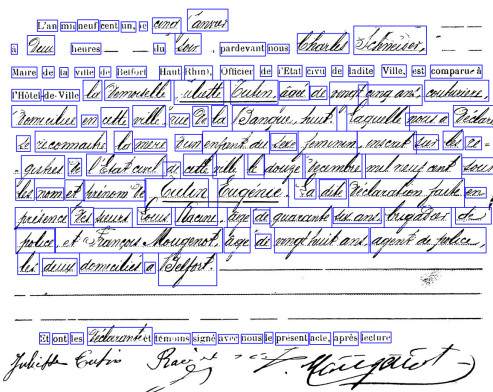 L'an mil neuf cent un, le cinq Janvier
à Deux heures du Soir, pardevant nous Charles Schmiser,
Maire de la ville de Belfort (Haut-Rhin), Officier de l'Etat civil de ladite Ville, est comparu à
l'Hôtel-de-Ville la Demoiselle Juliette Cutin, âgée de vingt cinq ans, couturière,
domiciliée en cette ville, rue de la Banque, huit. Laquelle nous a Déclaré
se reconnaître la mère d'un enfant du sexe féminin, inscrit sur les re-
gistres de l'Etat civil de cette ville, le douze Décembre mil neuf cent sous
les nom et prénom de Cutin Eugénie. La dite Déclaration faite en
présence des sieurs Louis Racine, âgé de quarante six ans, brigadier de
police, et François Mougenot, âgé de vingt huit ans, agent de police,
les deux domiciliés à Belfort.
Et ont les Déclarante et témoins signé avec nous le présent acte, après lecture
Juliette Cutin Racine Mougenot